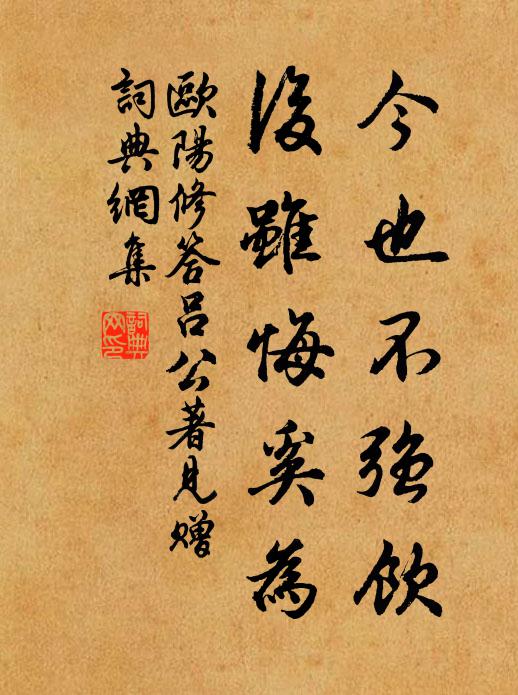 今也不強飲
後雖悔奚為
歐陽修答呂公著見贈
詞典網集
詞典网印